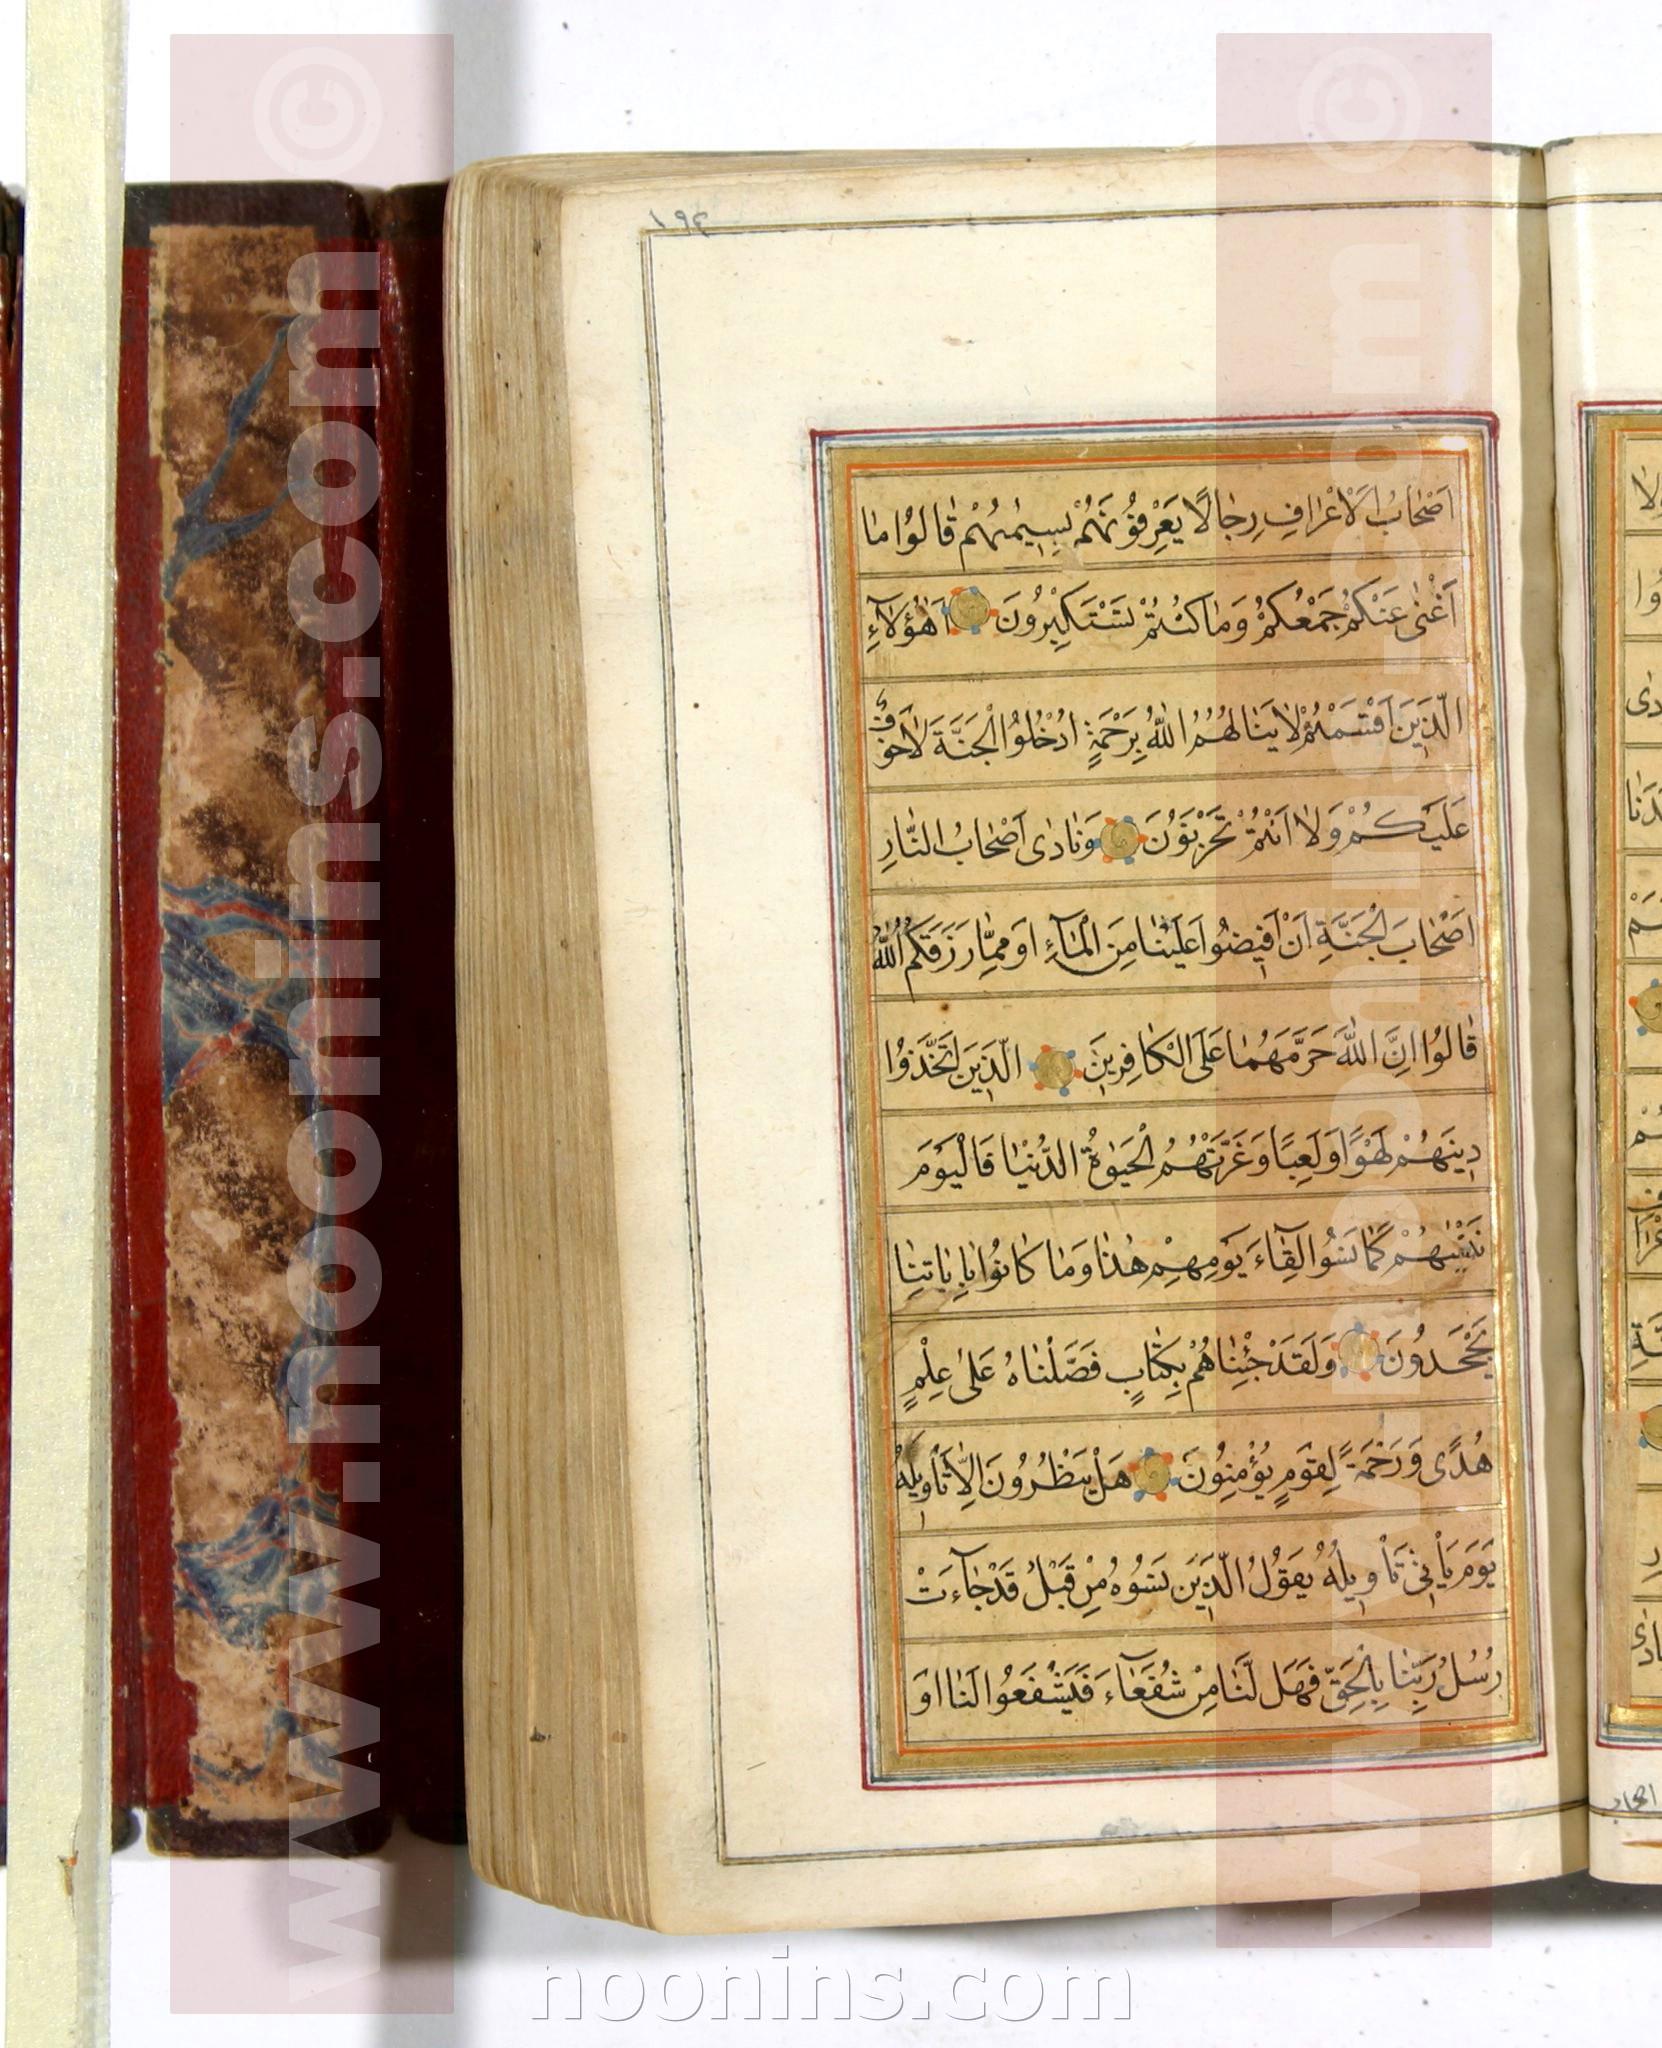 ١٩٤
اَصْحَابُ الْاَعْرَافِ رِجَالًا يَعْرِفُونَهُمْ بِسِيمٰيهُمْ قَالُوا مَا
اَغْنٰى عَنْكُمْ جَمْعُكُمْ وَمَا كُنْتُمْ تَسْتَكْبِرُونَ اَهٰؤُلَآءِ
الَّذِينَ اَقْسَمْتُمْ لَا يَنَالُهُمُ اللّٰهُ بِرَحْمَةٍ اُدْخُلُوا الْجَنَّةَ لَا خَوْفٌ
عَلَيْكُمْ وَلَا اَنْتُمْ تَحْزَنُونَ وَنَادٰى اَصْحَابُ النَّارِ
اَصْحَابَ الْجَنَّةِ اَنْ اَفِيضُوا عَلَيْنَا مِنَ الْمَآءِ اَوْ مِمَّا رَزَقَكُمُ اللّٰهُ
قَالُوا اِنَّ اللّٰهَ حَرَّمَهُمَا عَلَى الْكَافِرِينَ الَّذِينَ اتَّخَذُوا
دِينَهُمْ لَهْوًا وَلَعِبًا وَغَرَّتْهُمُ الْحَيٰوةُ الدُّنْيَا فَالْيَوْمَ
نَنْسٰيهُمْ كَمَا نَسُوا لِقَآءَ يَوْمِهِمْ هٰذَا وَمَا كَانُوا بِاٰيَاتِنَا
يَجْحَدُونَ وَلَقَدْ جِئْنَاهُمْ بِكِتَابٍ فَصَّلْنَاهُ عَلٰى عِلْمٍ
هُدًى وَرَحْمَةً لِقَوْمٍ يُؤْمِنُونَ هَلْ يَنْظُرُونَ اِلَّا تَاْوِيلَهُ
يَوْمَ يَاْتِى تَاْوِيلُهُ يَقُولُ الَّذِينَ نَسُوهُ مِنْ قَبْلُ قَدْ جَآءَتْ
رُسُلُ رَبِّنَا بِالْحَقِّ فَهَلْ لَنَا مِنْ شُفَعَآءَ فَيَشْفَعُوا لَنَا اَوْ
اصحاب
www.noonins.com ©
www.noonins.com ©
noonins.com